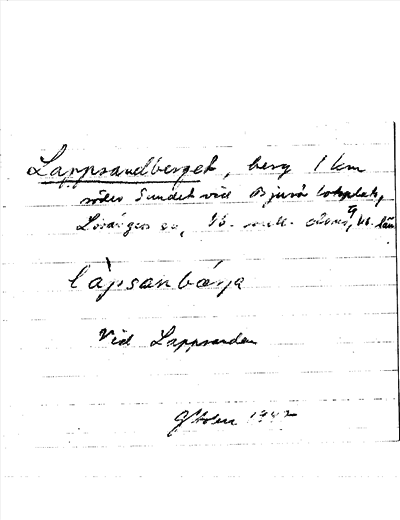 Lappsandberget, berg 1 km
söder Sundet vid Bjurö lotsplats,
Lövångers sn, Vb. län
låpsanbárja
Vid Lappsanden
1942